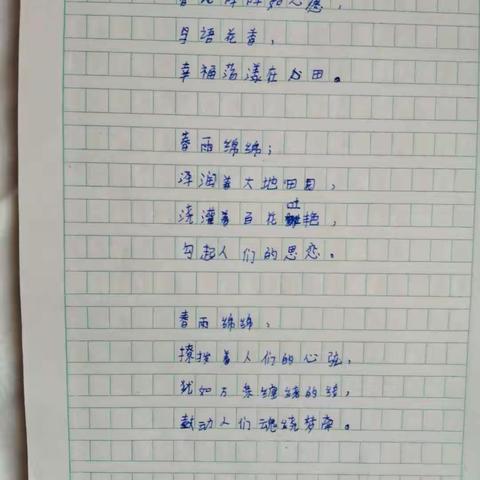 鸟语花香，
幸福荡漾在心田。
春雨绵绵；
滋润着大地田园，
浇灌着百花吐艳，
勾起人们的思恋。
春雨绵绵，
撩拨着人们的心弦，
犹如万条缠绕的线，
鼓动人们魂绕梦牵。